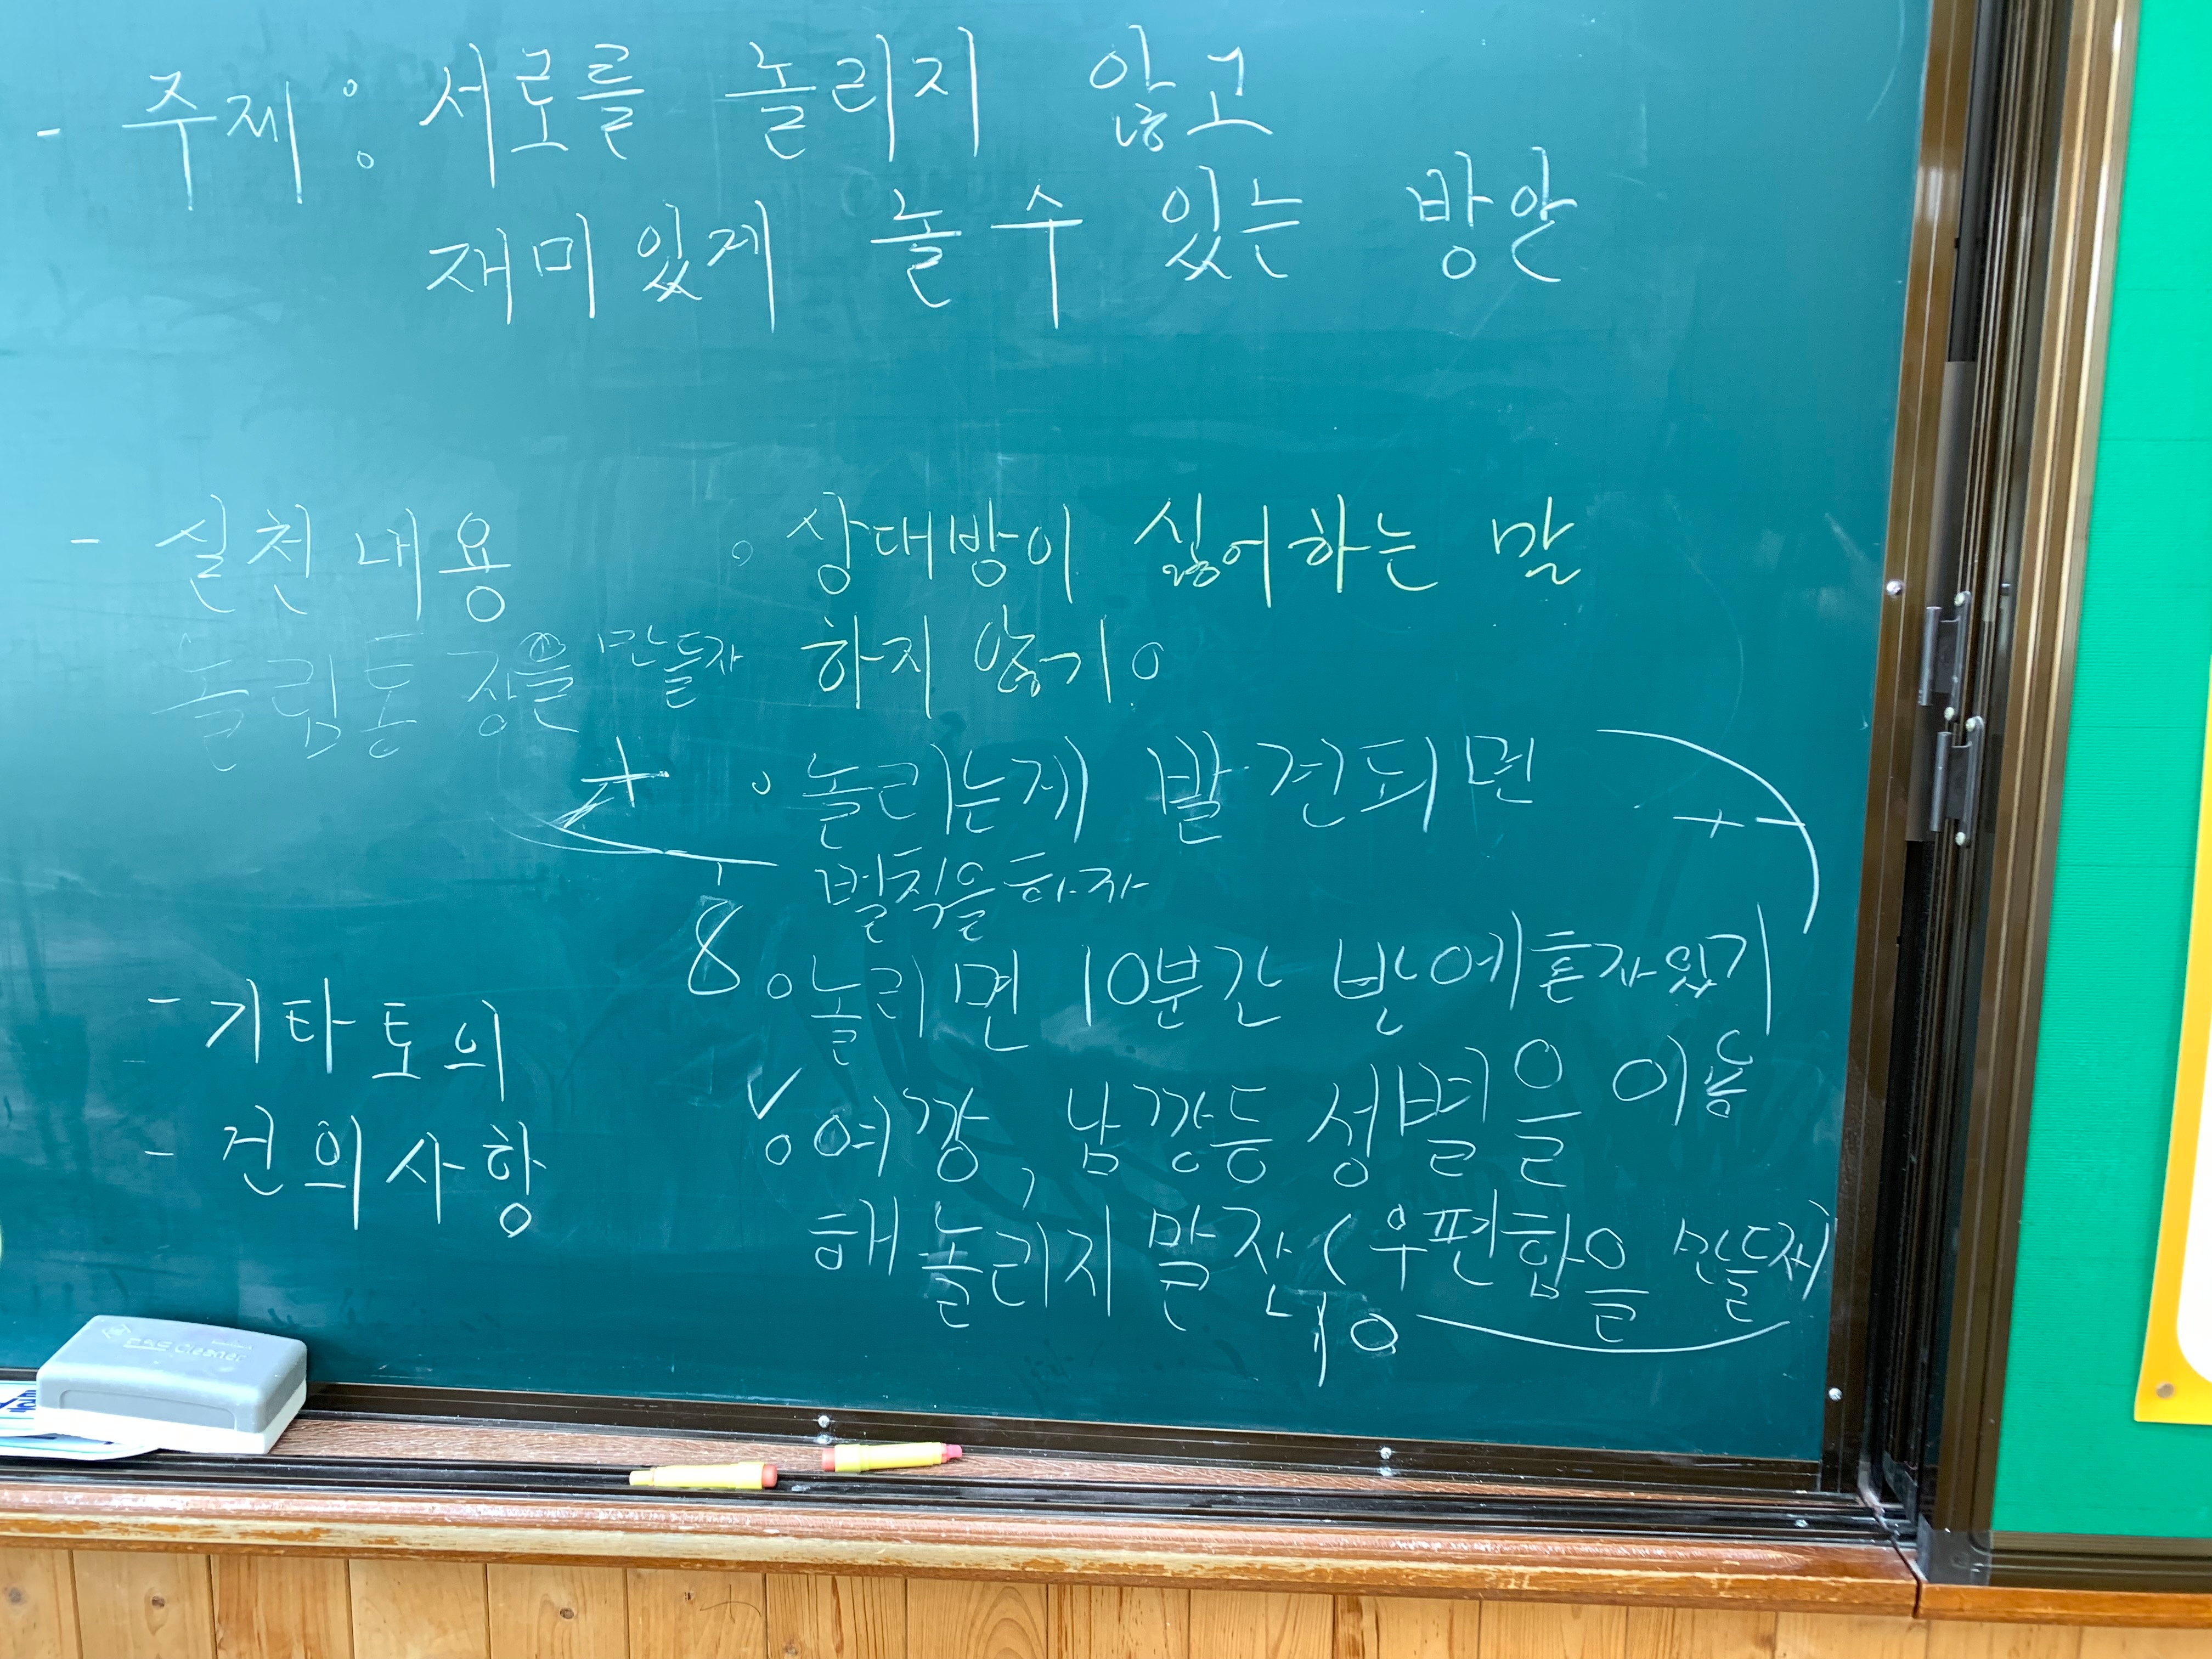 - 주제 : 서로를 놀리지 않고
재미있게 놀 수 있는 방안
- 실천내용
놀림통장을 만들자
◦ 상대방이 싫어하는 말
하지 않기。
◦ 놀리는게 발견되면
벌칙을하자
8 ◦ 놀리면 10분간 반에혼자있기
- 기타토의
✓ ◦ 여깡, 남깡등 성별을 이용
- 건의사항
해 놀리지 말자 (우편함을 만들자)
Cleaner